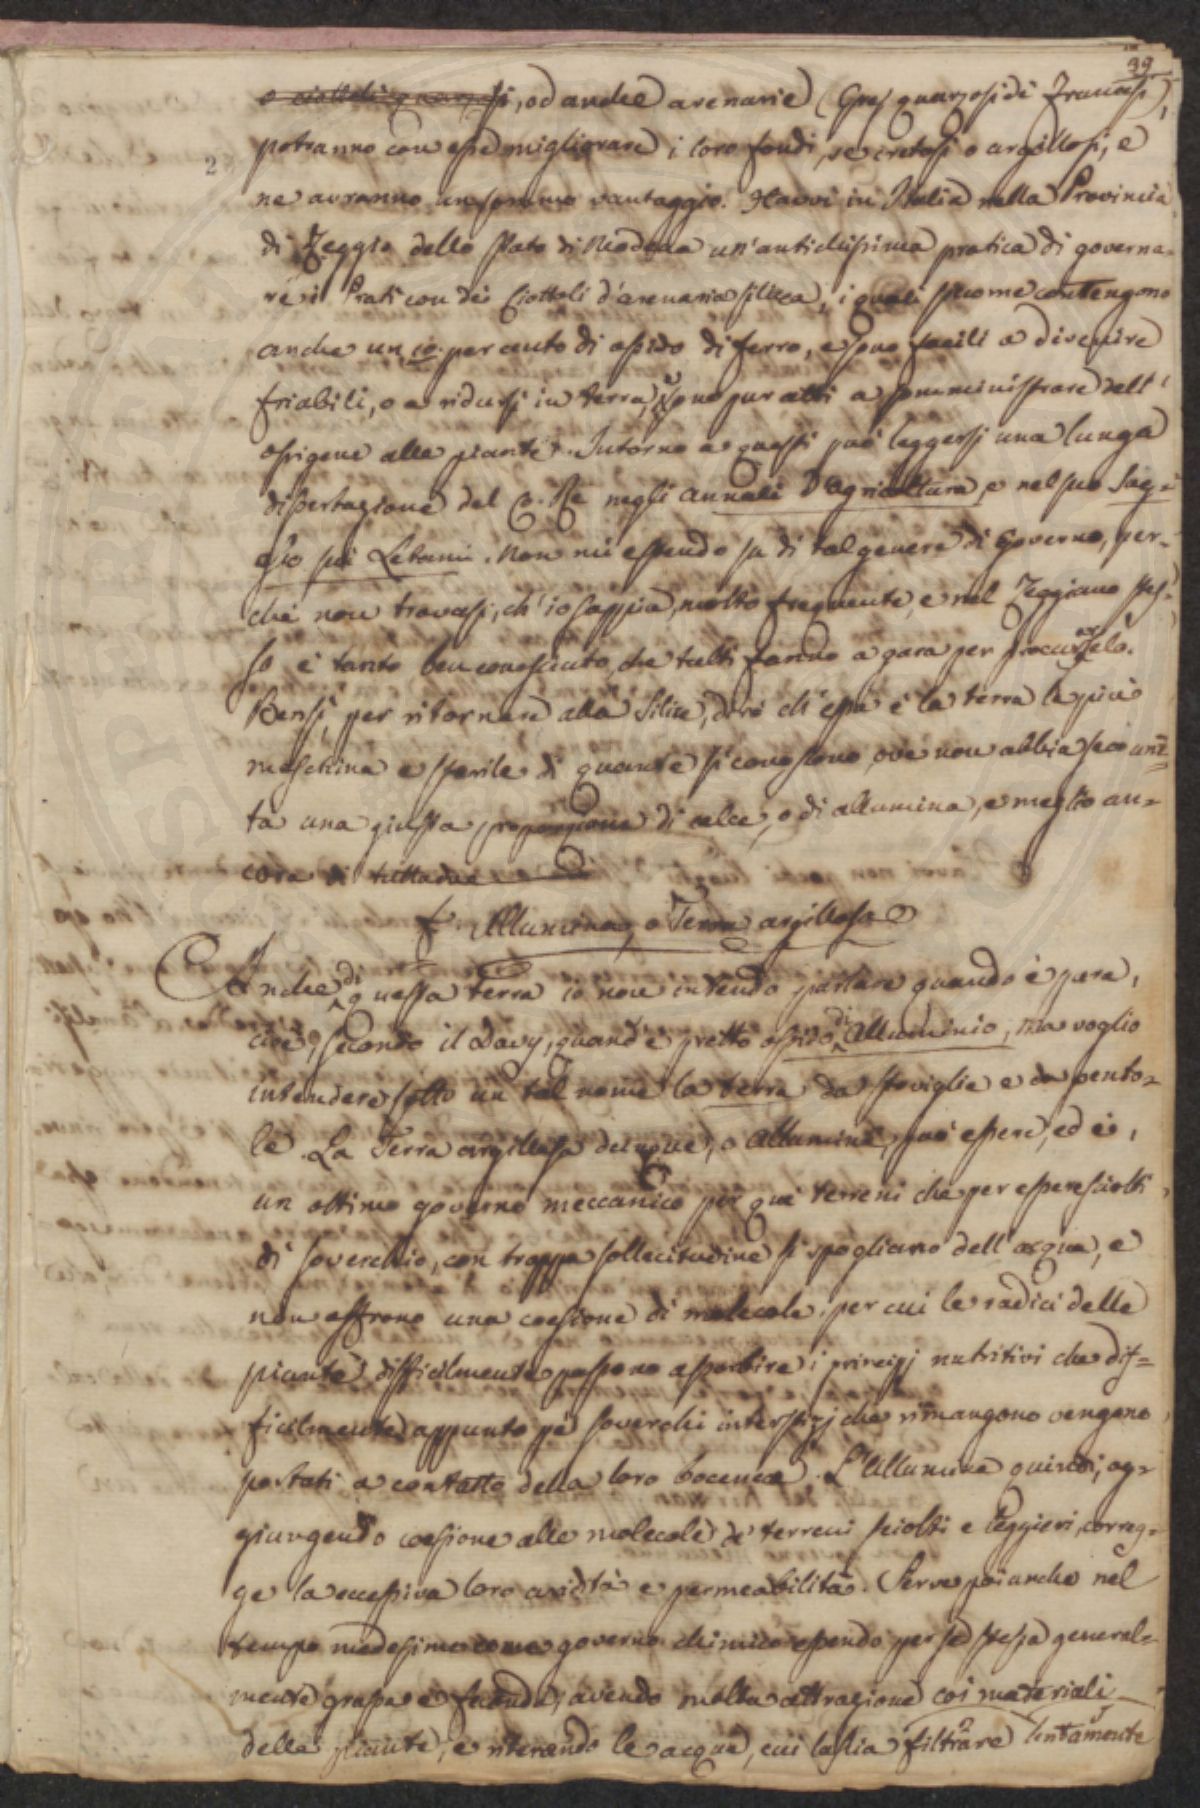 39
o ciottoli quarzosi, od anche arenarie (Gres quarzosi dé Francesi),
2
potranno con esse migliorare i loro fondi, se cretosi o argillosi, e
ne avranno un sommo vantaggio. Havvi in Italia nella Provincia
di Reggio dello Stato di Modena un'antichissima pratica di governa-
re i Prati con dei Ciottoli d'arenaria silicea, i quali siccome contengono
anche un 10. per cento di ossido di ferro, e sono facili a divenire
friabili, o a ridursi in terra, sono pur atti a somministrare dell'
ossigene alle piante. Intorno a questi può leggersi una lunga
dissertazione del C. Re negli annali d'agricoltura, e nel suo Sag-
gio sui Letami. Non mi estendo su di tal genere di Governo, per-
chè non trovasi, ch'io sappia, molto frequente, e nel Reggiano stes-
so è tanto ben conosciuto, che tutti fanno a gara per procurarselo.
Bensì, per ritornare alla Silice, dirò ch'essa è la terra la più
meschina e sterile di quante si conoscono, ove non abbia seco uni=
ta una giusta proporzione di calce, o di allumina, e meglio an=
cora di tuttadue
f. Allumina, o Terra argillosa
Anche di questa terra io non intendo parlare quando è pura,
cioè, secondo il Davy, quand'è pretto ossido di Alluminio, ma voglio
intendere sotto un tal nome la terra da stoviglie e da pento=
le. La Terra argillosa dunque, o Allumina, può essere, ed è,
un ottimo governo meccanico per que' terreni che per essere sciolti
di soverchio, con troppa sollecitudine si spogliano dell'acqua, e
non offrono una coesione di molecole, per cui le radici delle
piante difficilmente possono assorbire i principj nutritivi che dif=
ficilmente appunto pè soverchi interstizj che rimangono vengono
portati a contatto della loro boccucce. L'Allumina quindi, ag=
giungendo coesione alle molecole de' terreni sciolti e leggieri, correg=
ge la eccessiva loro aridità e permeabilità. Serve poi anche nel
tempo medesimo come governo chimico essendo per se stessa general=
mente grassa e feconda, avendo molta attrazione coi materiali
delle piante, e ritenendo le acque, cui lascia filtrare lentamente